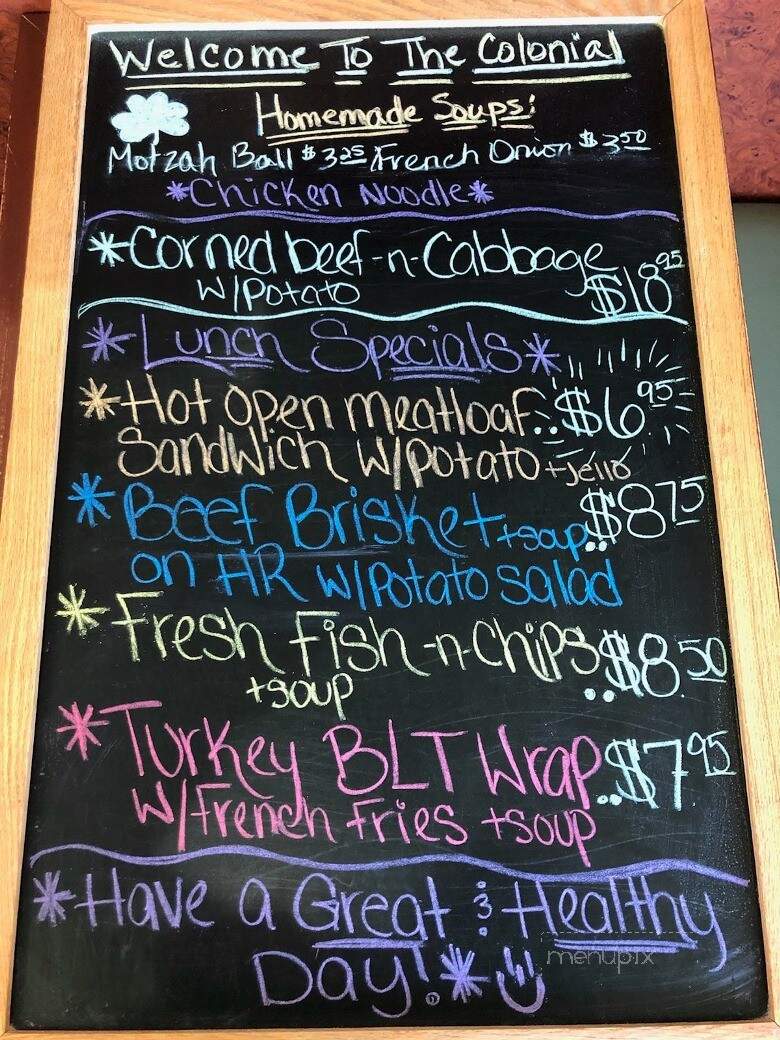 Welcome To The Colonial
Homemade Soups!
Motzah Ball $3.25 French Onion $3.50
*Chicken Noodle*
*Corned beef-n-Cabbage
w/Potato $18.95
*Lunch Specials*
*Hot open meatloaf..$6.95
Sandwich w/potato +jello
*Beef Brisket +soup..$8.75
on HR w/Potato salad
*Fresh Fish-n-Chips..$8.50
+soup
*Turkey BLT Wrap..$7.95
w/French Fries +soup
*Have a Great & Healthy
Day!*
menupix